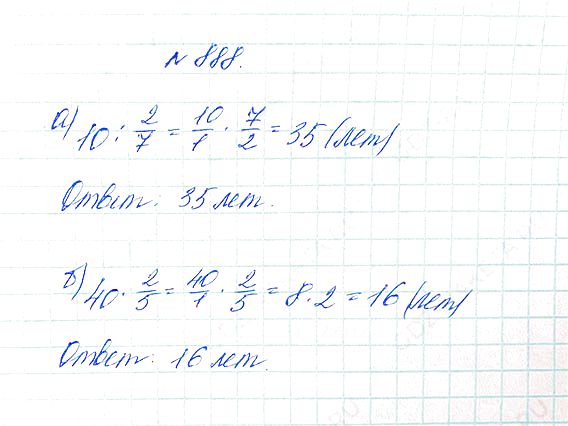 № 888.
а) 10 : 2/7 = 10/1 · 7/2 = 35 (лет)
Ответ: 35 лет.
б) 40 · 2/5 = 40/1 · 2/5 = 8 · 2 = 16 (лет)
Ответ: 16 лет.